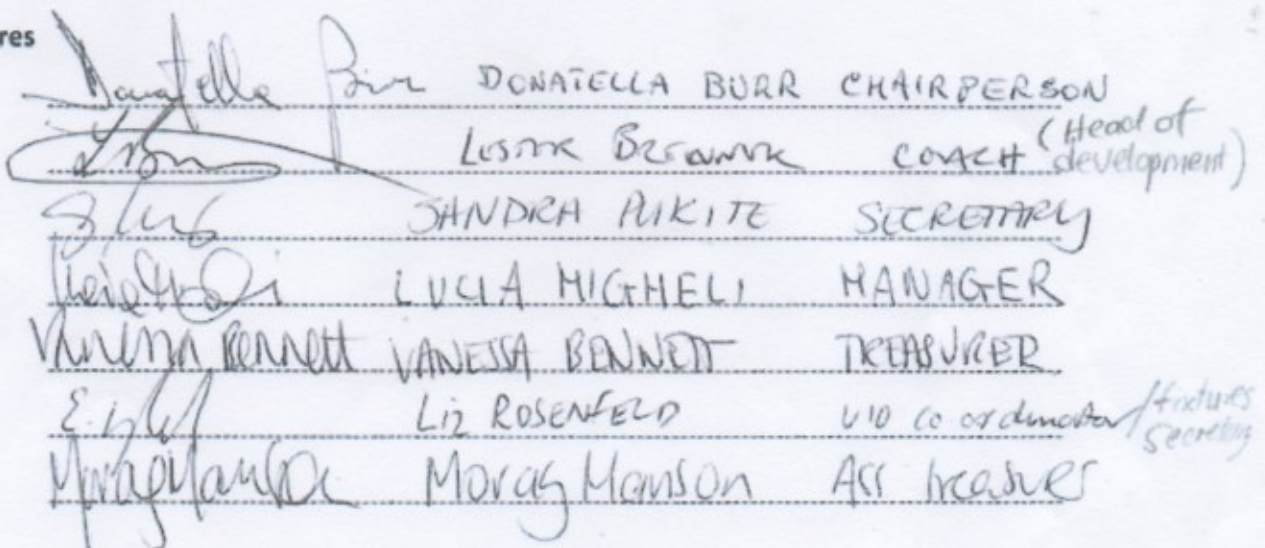 res
Donatella Burr DONATELLA BURR CHAIRPERSON
COACH (Head of development)
SANDRA PUKITE SECRETARY
LUCIA MIGHELI MANAGER
Vanessa Bennett VANESSA BENNETT TREASURER
Liz ROSENFELD U10 co ordinator / fixtures Secretary
Morag Manson Morag Manson Ass treasurer